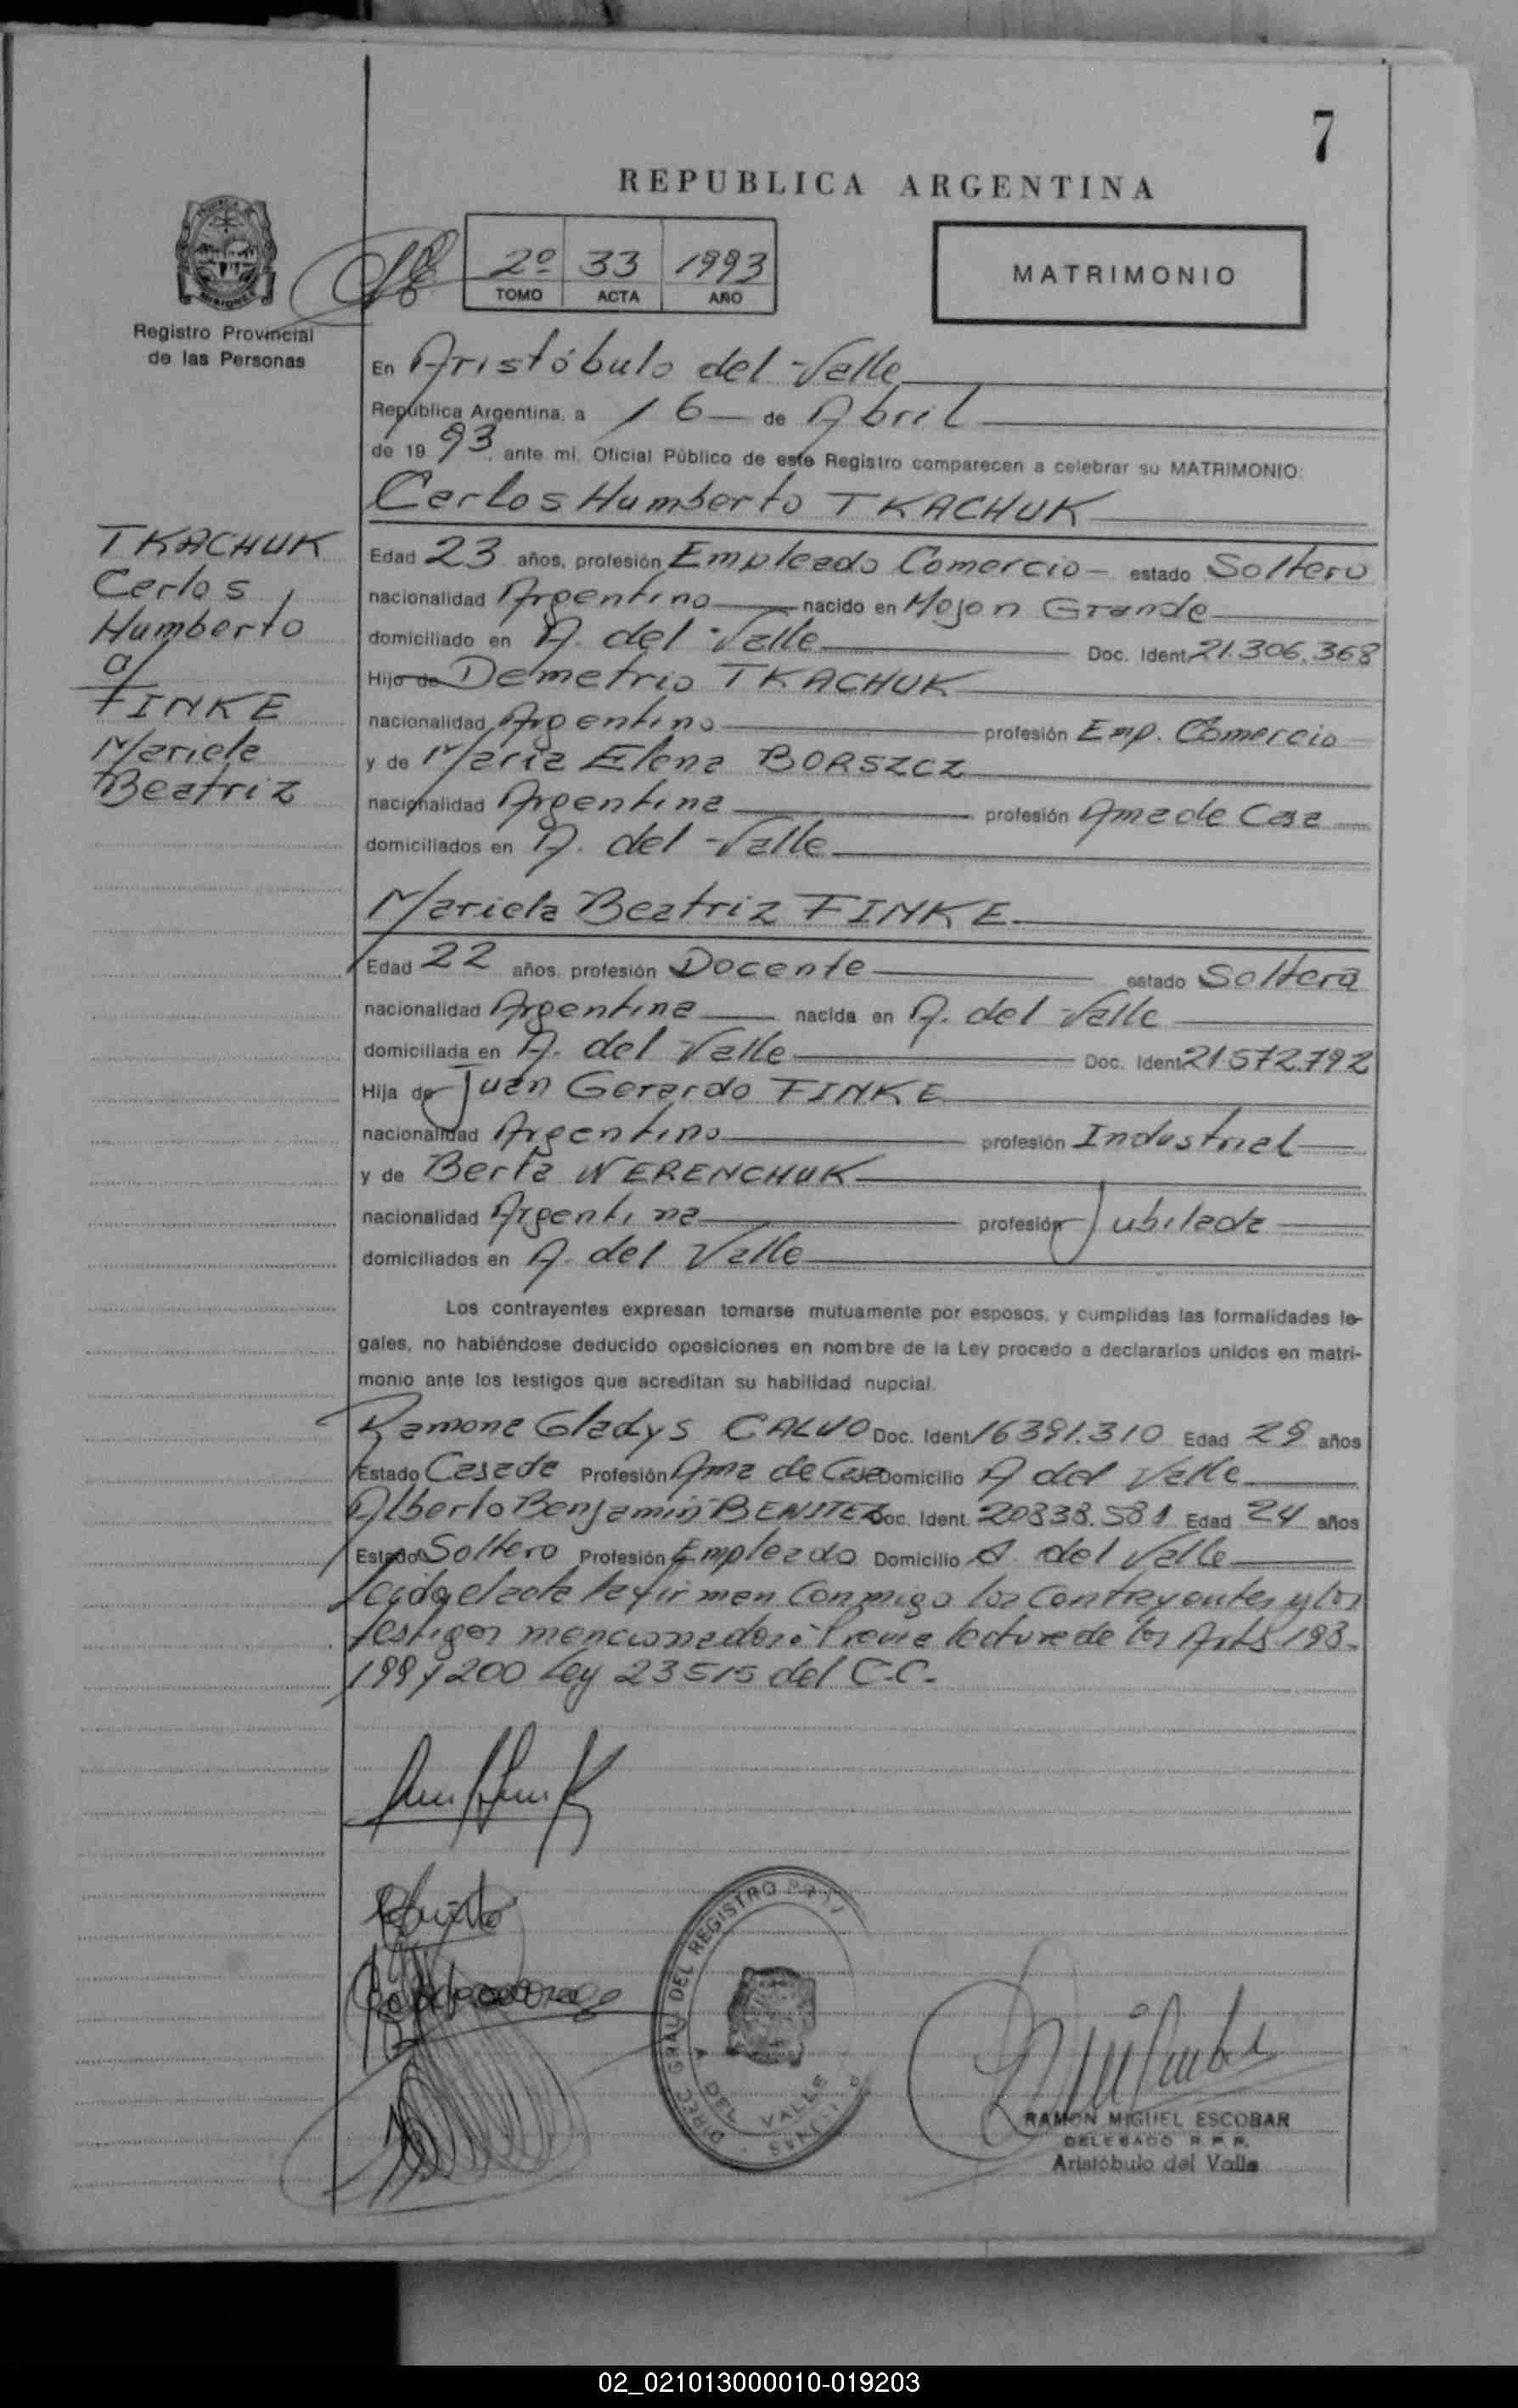 7
REPUBLICA ARGENTINA
2º 33 1993
TOMO ACTA AÑO
MATRIMONIO
Registro Provincial
de las Personas
En Aristóbulo del Valle
República Argentina, a 16 de Abril
de 1993, ante mí, Oficial Público de este Registro comparecen a celebrar su MATRIMONIO:
Carlos Humberto TKACHUK
TKACHUK
Carlos
Humberto
c/
FINKE
Mariela
Beatriz
Edad 23 años, profesión Empleado Comercio estado Soltero
nacionalidad Argentino nacido en Mojon Grande
domiciliado en A. del Valle Doc. Ident. 21.306.368
Hijo de Demetrio TKACHUK
nacionalidad Argentino profesión Emp. Comercio
y de María Elena BORSZCZ
nacionalidad Argentina profesión Ama de Casa
domiciliados en A. del Valle
Mariela Beatriz FINKE
Edad 22 años, profesión Docente estado Soltera
nacionalidad Argentina nacida en A. del Valle
domiciliada en A. del Valle Doc. Ident. 21.572.792
Hija de Juan Gerardo FINKE
nacionalidad Argentino profesión Industrial
y de Berta WERENCHUK
nacionalidad Argentina profesión Jubilada
domiciliados en A. del Valle
Los contrayentes expresan tomarse mutuamente por esposos, y cumplidas las formalidades le-
gales, no habiéndose deducido oposiciones en nombre de la Ley procedo a declararlos unidos en matri-
monio ante los testigos que acreditan su habilidad nupcial.
Ramona Gladys CALVO Doc. Ident. 16391.310 Edad 29 años
Estado Casada Profesión Ama de Casa Domicilio A del Valle
Alberto Benjamin BENITEZ Doc. Ident. 20838.581 Edad 24 años
Estado Soltero Profesión Empleado Domicilio A. del Valle
Leida el acta la firman Conmigo los Contrayentes y los
testigos mencionados: Previa lectura de los Arts. 198-
199 y 200 Ley 23515 del C.C.
DIREC. GRAL. DEL REGISTRO
A. DEL VALLE
RAMON MIGUEL ESCOBAR
DELEGADO R. P. P.
Aristóbulo del Valle
02_021013000010-019203